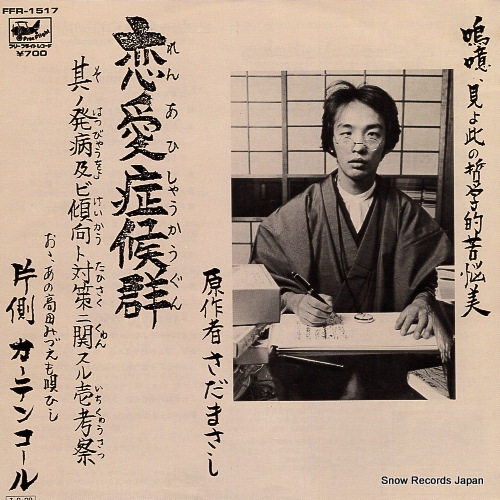 FFR-1517
Free Flight
フリーフライトレコード
¥700
嗚噫、見よ此の哲学的苦悩美
恋愛症候群
れんあひしゃうかうぐん
其ノ発病及ビ傾向ト対策ニ関スル壱考察
そ はつびゃうおよ けいかう たいさく くわん いちかうさつ
原作者 さだまさし
おゝ、あの高田みづえも唄ひし
片側 カーテンコール
Snow Records Japan